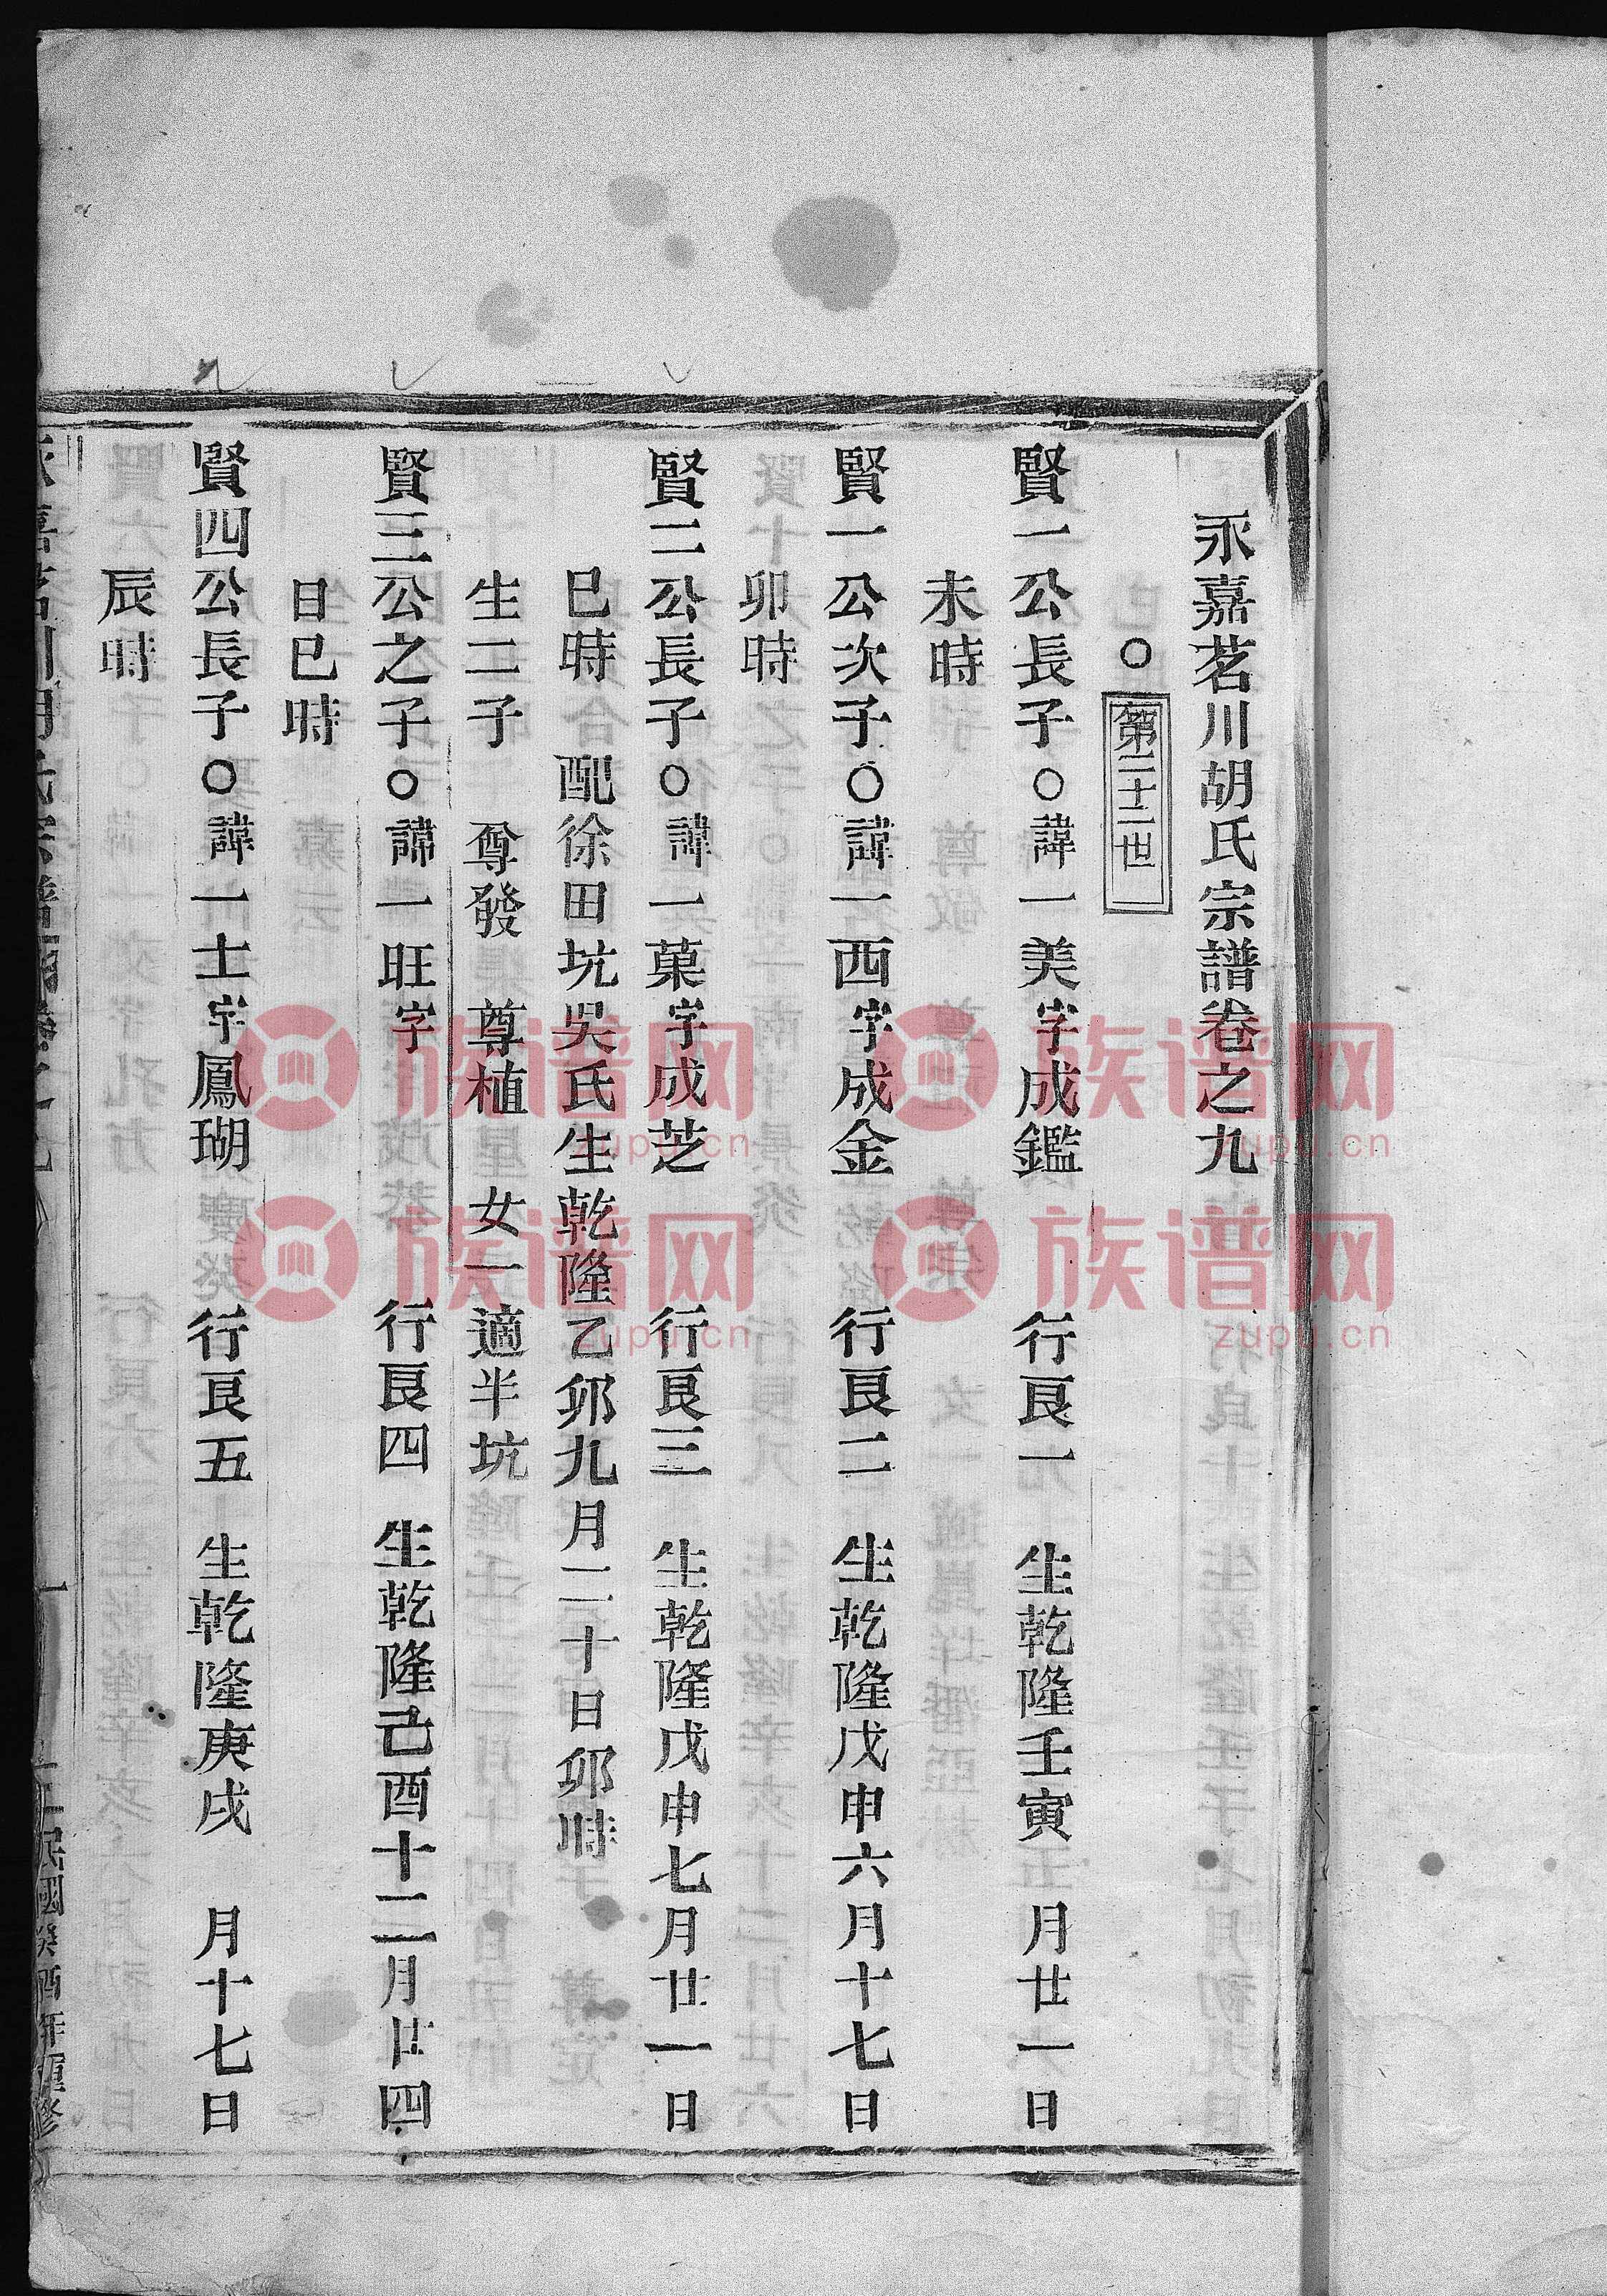 永嘉茗川胡氏宗譜卷之九
○第二十二世
賢一公長子○諱一美字成鑑 行良一 生乾隆壬寅 月廿一日
未時
賢一公次子○諱一西字成金 行良二 生乾隆戊申六月十七日
卯時
賢二公長子○諱一菓字成芝 行良三 生乾隆戊申七月廿一日
巳時 配徐田坑吳氏生乾隆乙卯九月二十日卯時
生二子 尊發 尊植 女一適半坑
賢三公之子○諱一旺字 行良四 生乾隆己酉十二月廿四
日巳時
賢四公長子○諱一士字鳳瑚 行良五 生乾隆庚戌 月十七日
辰時
民國癸酉年重修
族谱网
zupu.cn
族谱网
zupu.cn
族谱网
zupu.cn
族谱网
zupu.cn